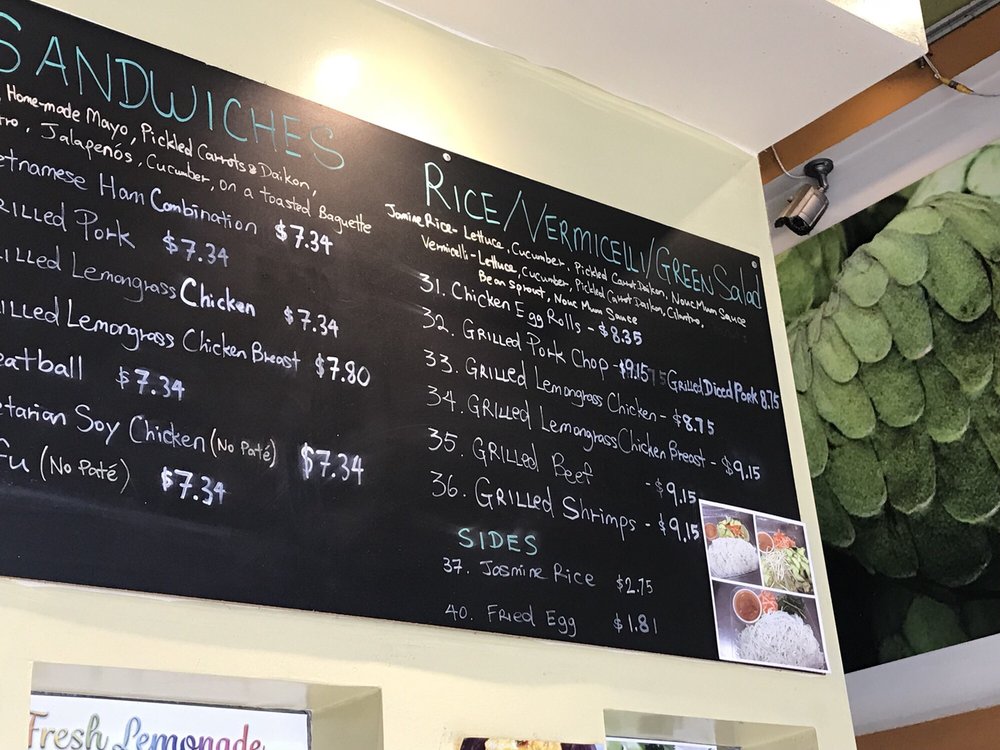 SANDWICHES
Home-made Mayo, Pickled Carrots & Daikon,
Jalapeños, Cucumber, on a toasted Baguette
Ham Combination $7.34
Pork $7.34
Lemongrass Chicken $7.34
Lemongrass Chicken Breast $7.80
$7.34
Soy Chicken (No Paté) $7.34
(No Paté) $7.34
RICE/VERMICELLI/GREEN Salad
Jasmine Rice - Lettuce, Cucumber, Pickled Carrot Daikon, Nouc Mum Sauce
Vermicelli - Lettuce, Cucumber, Pickled Carrot Daikon, Cilantro,
Bean Sprout, Nouc Mum Sauce
31. Chicken Egg Rolls - $8.35
32. GRILLED Pork Chop - $9.15 Grilled Diced Pork 8.75
33. GRILLED Lemongrass Chicken - $8.75
34. GRILLED Lemongrass Chicken Breast - $9.15
35. GRILLED Beef - $9.15
36. GRILLED Shrimps - $9.15
SIDES
37. Jasmine Rice $2.75
40. Fried Egg $1.81
Fresh Lemonade